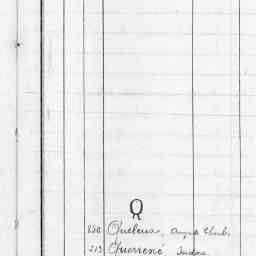 Q
250 Queleux, Auguste Charles
213 Querrené, Isidore